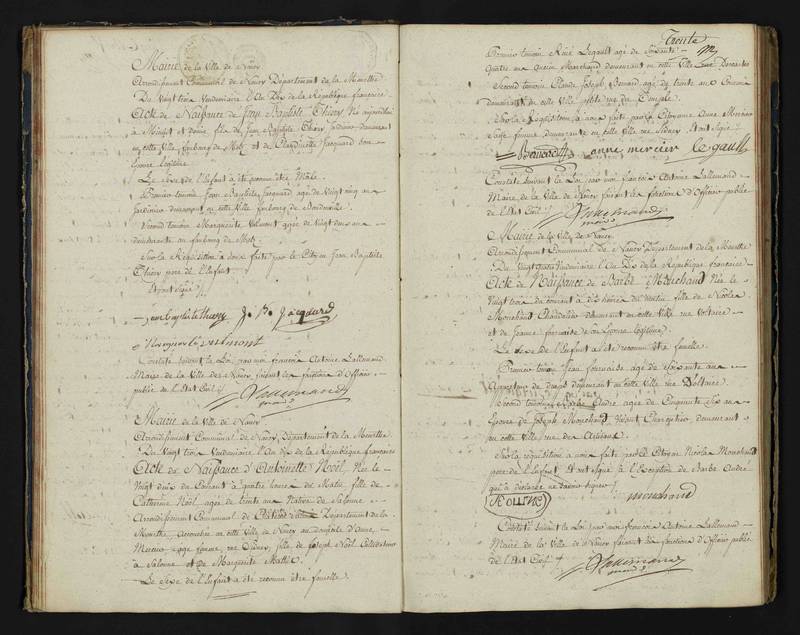 Mairie de la Ville de Nancy
Arrondissement Communal de Nancy Département de la Meurthe
Du Vingt trois Vendemiaire l'An Dix de la République française
Acte de Naissance de Jean Baptiste Thiery Né aujourd'hui
à Minuit et demie fils de Jean Baptiste Thiery Jardinier demeurant
en cette Ville faubourg de Metz et de Jacquard son
Epouse légitime
Le Sexe de l'Enfant a été reconnu être Mâle.
Premier témoin Jean Baptiste Jacquard agé de Vingt cinq ans
Jardinier demeurant en cette Ville faubourg de
Second temoin Marguerite Volmont agée de Vingt deux ans
demeurante au faubourg de Metz
Sur la Réquisition à nous faite par le Citoyen Jean Baptiste
Thiery pere de l'Enfant
Et ont Signé
jean baptiste thiery J. B. Jacquard
Marguerite vulmont
Constaté suivant la Loi, par moi françois Antoine Lallemand
Maire de la Ville de Nancy faisant les fonctions d'Officier
public de l'Etat Civil
Lallemand
Mairie de la Ville de Nancy
Arrondissement Communal de Nancy, Département de la Meurthe
Du Vingt trois Vendemiaire l'An dix de la République française
Acte de Naissance d'Antoinette Noël, Née le
Vingt deux du Courant à quatre heures du Matin fille de
Catherine Noël agée de trente ans Native de Salonne
Arrondissement Communal de Département de la
Meurthe, accouchée en cette Ville de Nancy au domicile d'Anne
Mercier Sage femme, rue fille de Joseph Noël Cultivateur
à Salonne et de Marguerite
Le Sexe de l'Enfant a été reconnu être femelle.
Trente
Premier temoin René Legault agé de Soixante
quatre ans Marchand demeurant en cette Ville
Second temoin Claude Joseph Benard agé de trente ans
demeurant en cette Ville petite rue du
Sur la Réquisition à nous faite par la Citoyenne Anne Mercier
Sage femme demeurante en cette Ville rue Et ont Signé
anne mercier Legault
Constaté suivant la Loi, par moi françois Antoine Lallemand
Maire de la Ville de Nancy faisant les fonctions d'Officier public
de l'Etat Civil
Lallemand
Mairie de la Ville de Nancy
Arrondissement Communal de Nancy Département de la Meurthe
Du Vingt quatre Vendemiaire l'An Dix de la République française
Acte de Naissance de Barbe Mouchand Née le
Vingt trois du courant à dix heures du Matin fille de Nicolas
Mouchand Chandelier demeurant en cette Ville rue Voltaire
et de Jeanne son Epouse légitime
Le Sexe de l'Enfant a été reconnu être femelle.
Premier temoin Jean agé de Soixante ans
demeurant en cette Ville rue Voltaire
Second temoin Barbe André agée de Cinquante Six ans
Epouse de Joseph Mouchand demeurant
en cette Ville rue des Artisans
Sur la réquisition à nous faite par le Citoyen Nicolas Mouchand
pere de l'Enfant Et ont signé à l'Exception de Barbe André
qui a déclaré ne savoir signer
mouchand
Constaté suivant la Loi par moi françois Antoine Lallemand
Maire de la Ville de Nancy faisant les fonctions d'Officier public
de l'Etat Civil
Lallemand